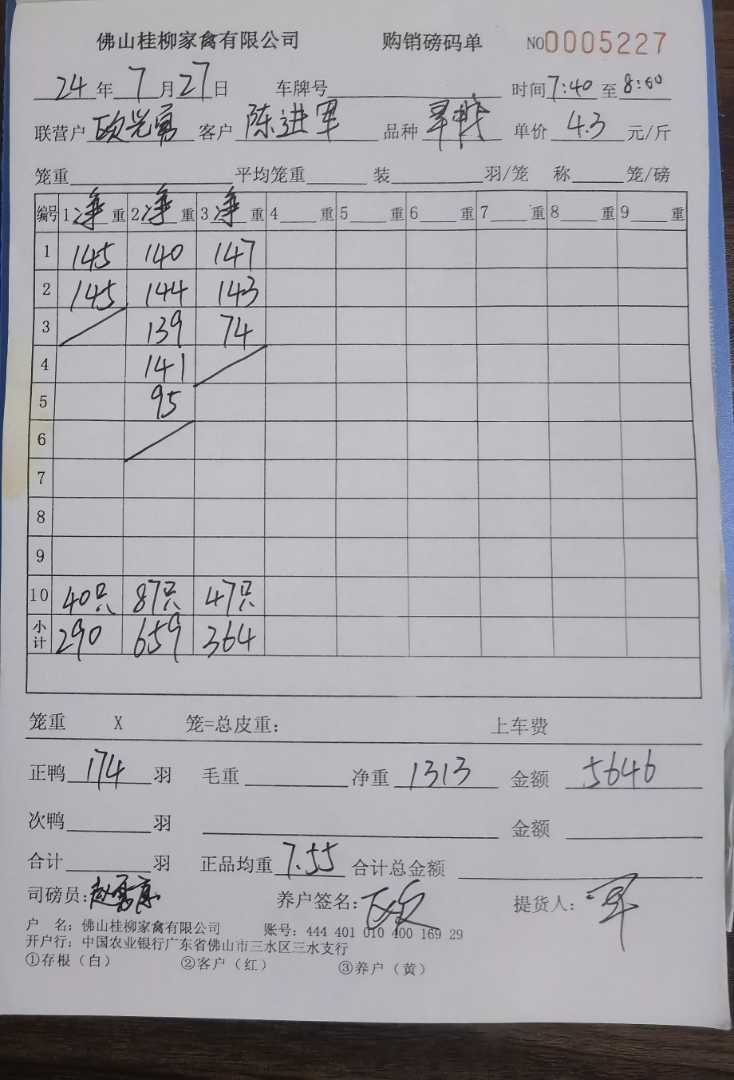 佛山桂柳家禽有限公司 购销磅码单 NO0005227
24年7月27日 车牌号 时间7:40至8:00
联营户 客户陈进军 品种 单价4.3元/斤
笼重 平均笼重 装 羽/笼 称 笼/磅
编号 1净重 2净重 3净重 4 重 5 重 6 重 7 重 8 重 9 重
1 145 140 147
2 145 144 143
3 139 74
4 141
5 95
6
7
8
9
10 40只 87只 47只
小计 290 659 364
笼重 X 笼=总皮重: 上车费
正鸭174羽 毛重 净重1313 金额5646
次鸭 羽 金额
合计 羽 正品均重7.55 合计总金额
司磅员: 养户签名: 提货人:军
户 名: 佛山桂柳家禽有限公司 账号: 444 401 010 400 169 29
开户行: 中国农业银行广东省佛山市三水区三水支行
①存根（白） ②客户（红） ③养户（黄）